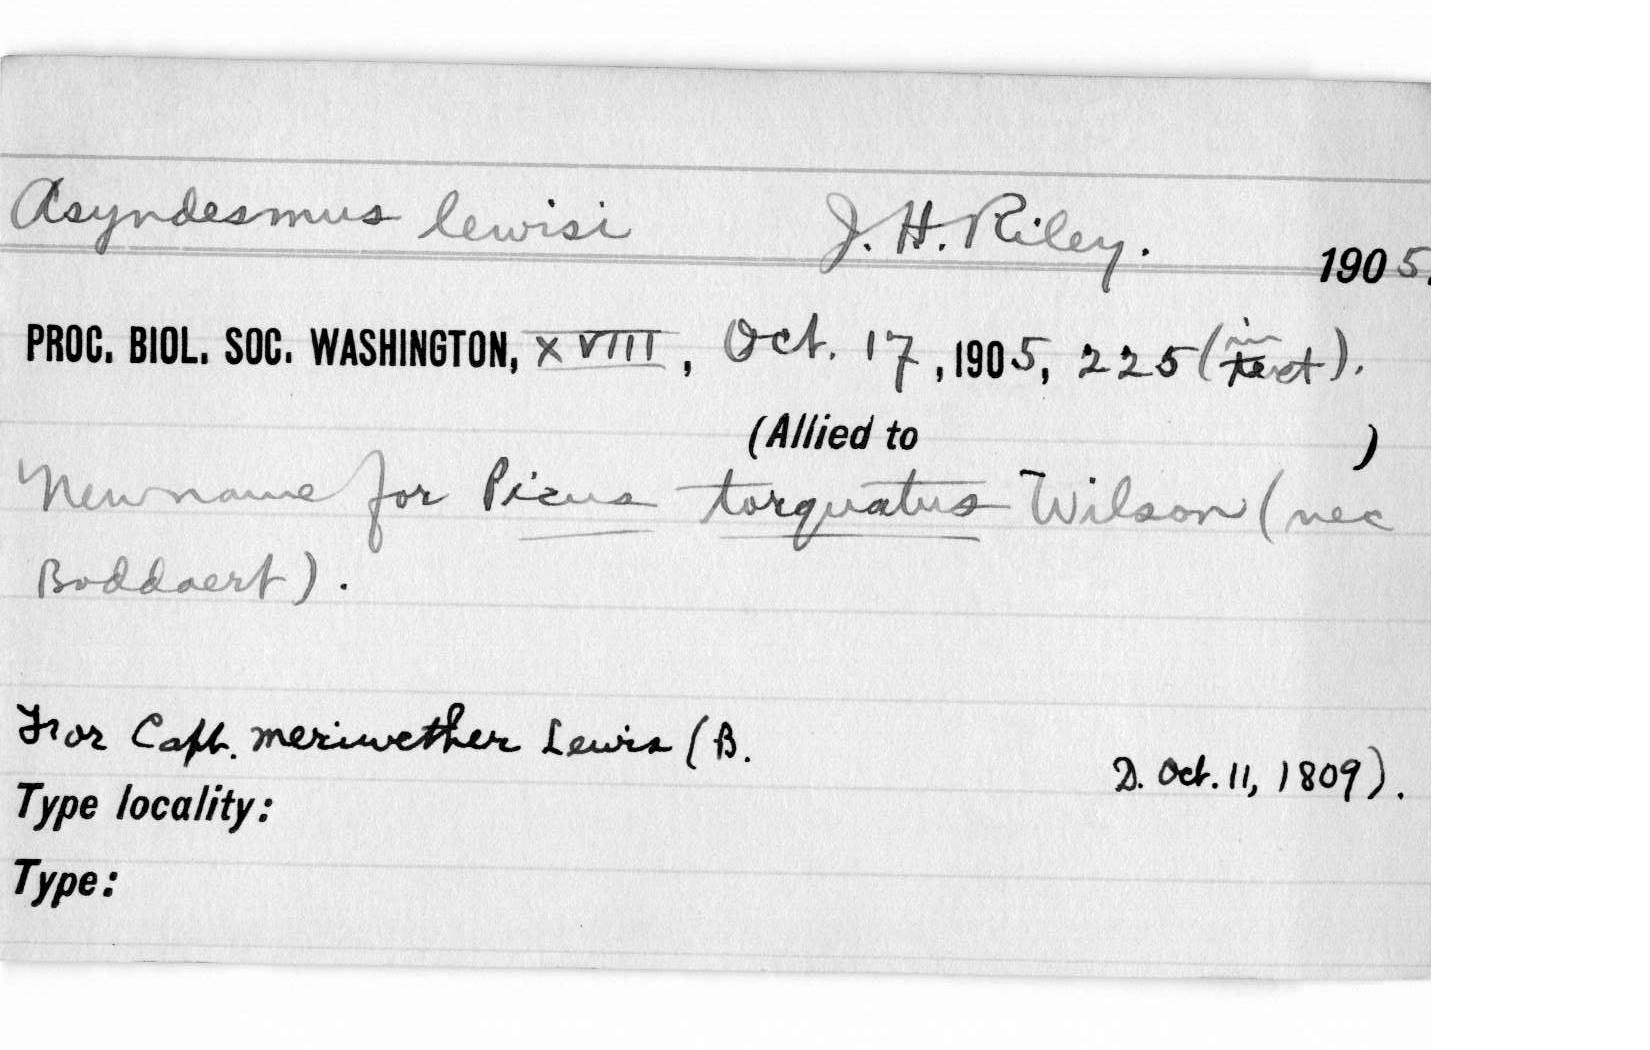 Asyndesmus lewisi J. H. Riley. 1905.
PROC. BIOL. SOC. WASHINGTON, XVIII, Oct. 17, 1905, 225 (in text).
(Allied to )
New name for Picus torquatus Wilson (nec
Boddaert).
For Capt. Meriwether Lewis (B. D. Oct. 11, 1809).
Type locality:
Type: